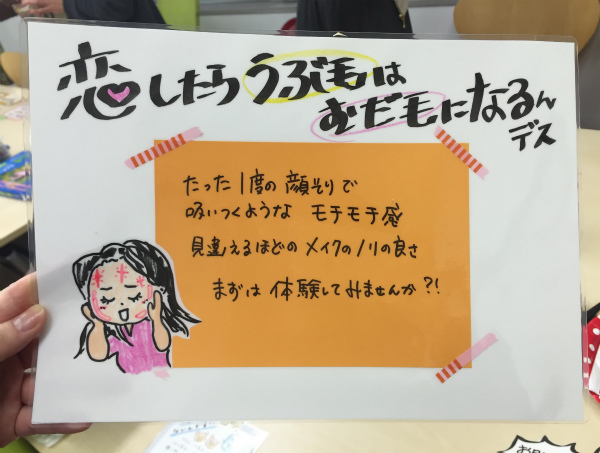 恋したら うぶ毛は
むだ毛になるん
デス
たった1度の 顔そりで
吸いつくような モチモチ感
見違えるほどの メイクのノリの良さ
まずは 体験してみませんか?!